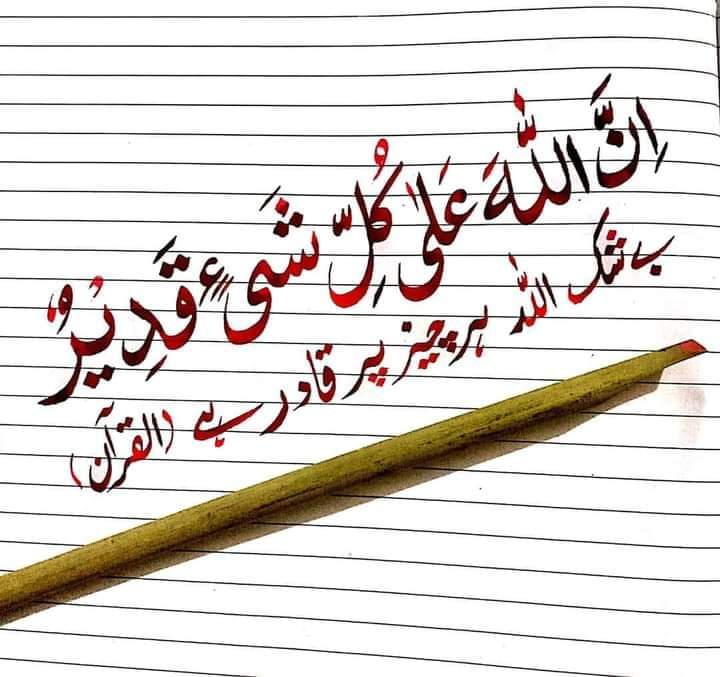 اِنَّ اللّٰهَ عَلٰى كُلِّ شَىْءٍ قَدِيْرٌ
بے شک اللہ ہر چیز پر قادر ہے (القرآن)